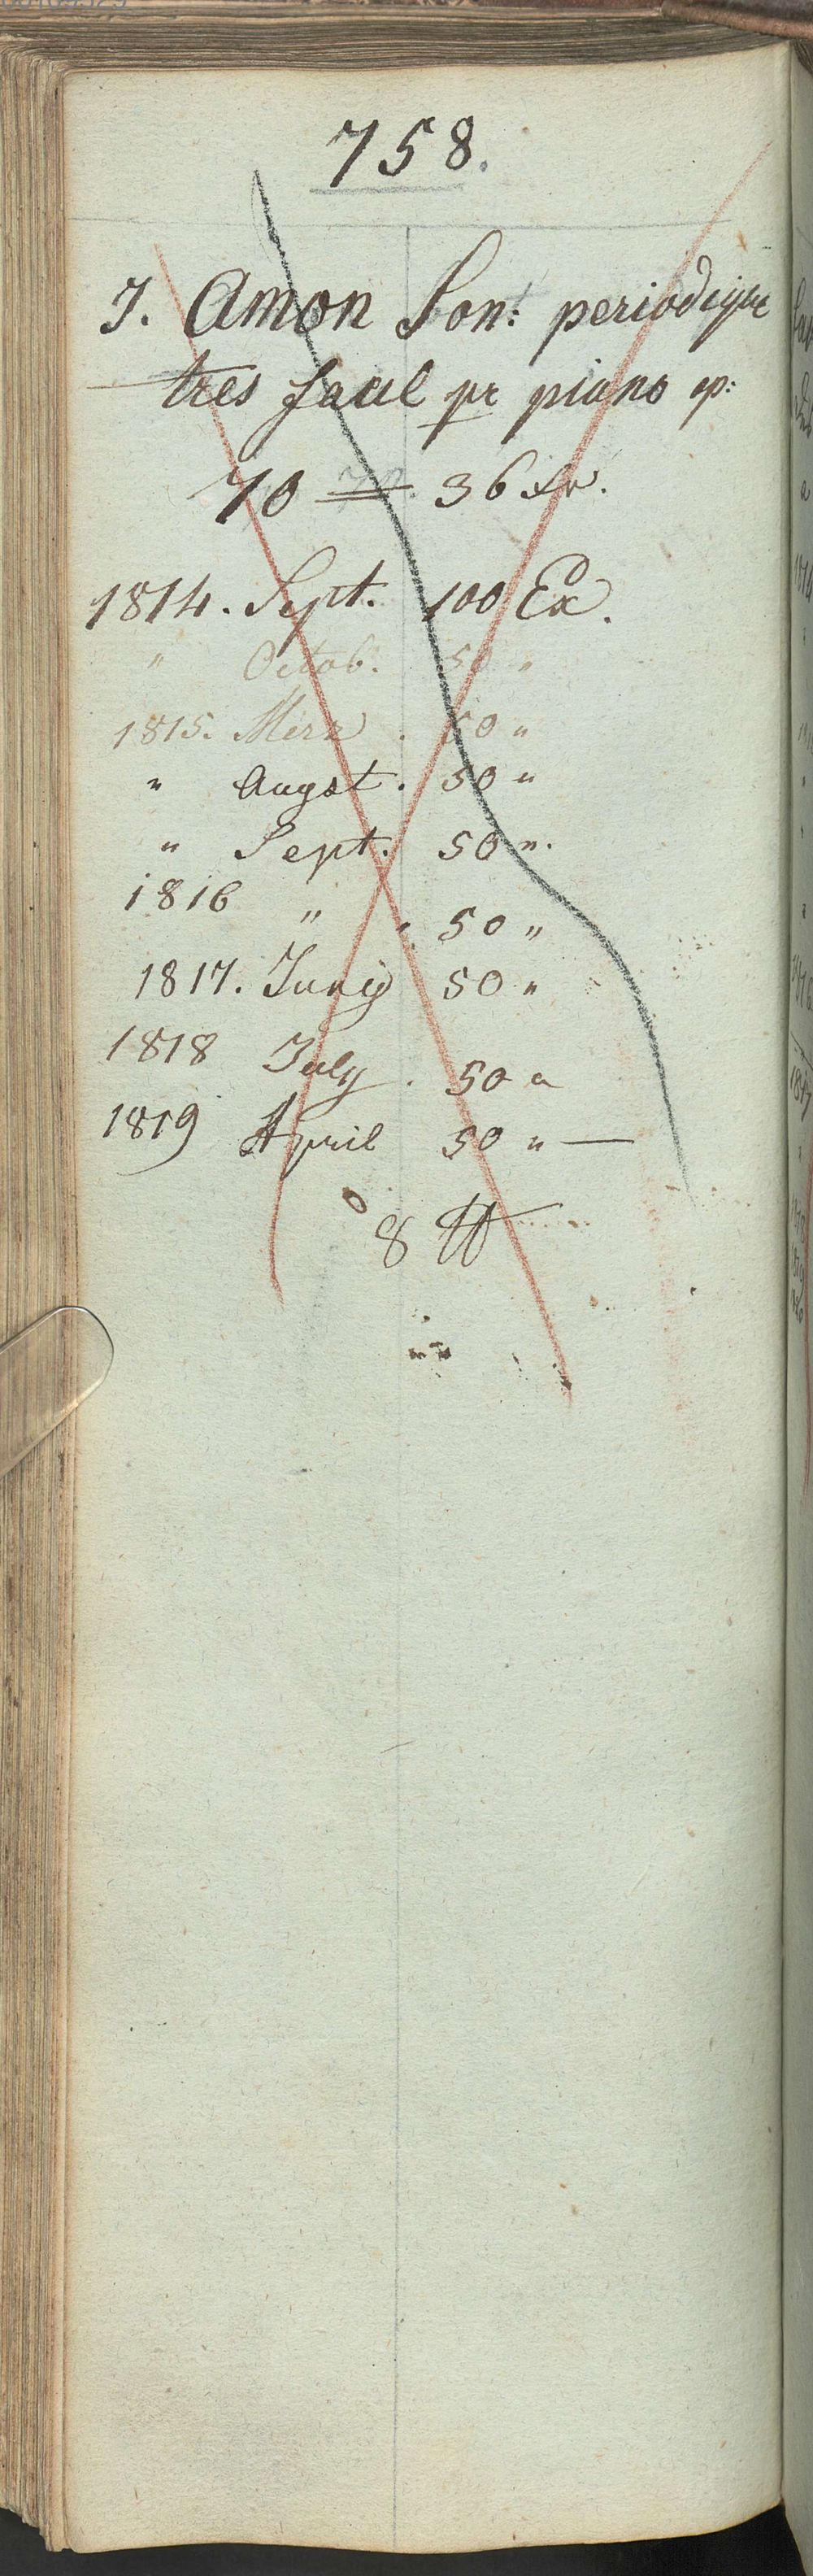 758.
J. Amon Son: periodique
tres facil pr piano op:
70 36 Xr.
1814. Sept. 100 Ex.
" Octob. 50 "
1815. Merz . 50 "
" Augst. 50 "
" Sept. 50 ".
1816 " . 50 "
1817. Juny 50 "
1818 July . 50 "
1819 April 50 " —
8 ℔